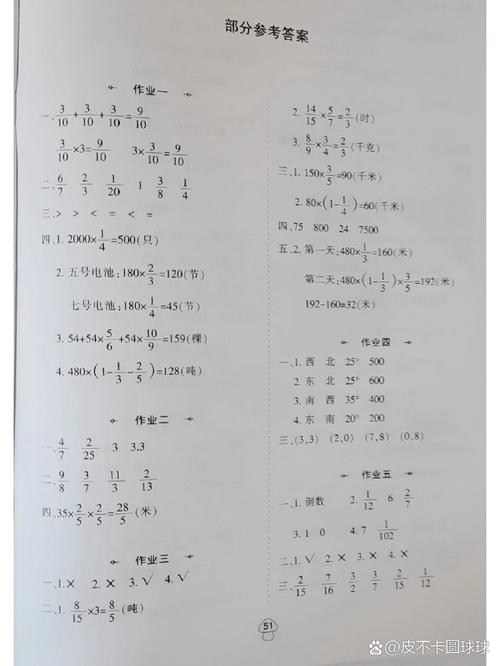 部分参考答案
作业一
一、3/10+3/10+3/10=9/10
3/10×3=9/10 3×3/10=9/10
二、6/7 2/3 1/20 1 3/8 1/4
三、> > < = < =
四、1. 2000×1/4=500(只)
2. 五号电池:180×2/3=120(节)
七号电池:180×1/4=45(节)
3. 54+54×5/6+54×10/9=159(棵)
4. 480×(1-1/3-2/5)=128(吨)
作业二
一、4/7 2/25 3 3.3
二、9/8 3/7 11/3 2/13
四、35×2/5×2/5=28/5(米)
作业三
一、1.× 2.× 3.√ 4.√
二、1. 8/15×3=8/5(吨)
2. 14/15×5/7=2/3(时)
3. 8/9×3/4=2/3(千克)
三、1. 150×3/5=90(千米)
2. 80×(1-1/4)=60(千米)
四、75 800 24 7500
五、2. 第一天:480×1/3=160(米)
第二天:480×(1-1/3)×3/5=192(米)
192-160=32(米)
作业四
一、1. 西 北 25° 500
2. 东 北 25° 600
3. 南 西 35° 400
4. 东 南 20° 200
三、(3,3) (2,0) (7,8) (0,8)
作业五
一、1. 倒数 2. 1/12 6 2/7
3. 1 0 4. 7 1/102
二、1.√ 2.× 3.× 4.×
三、2/15 7/16 3/2 3/7 2/15 1/12
51
@皮不卡圆球球